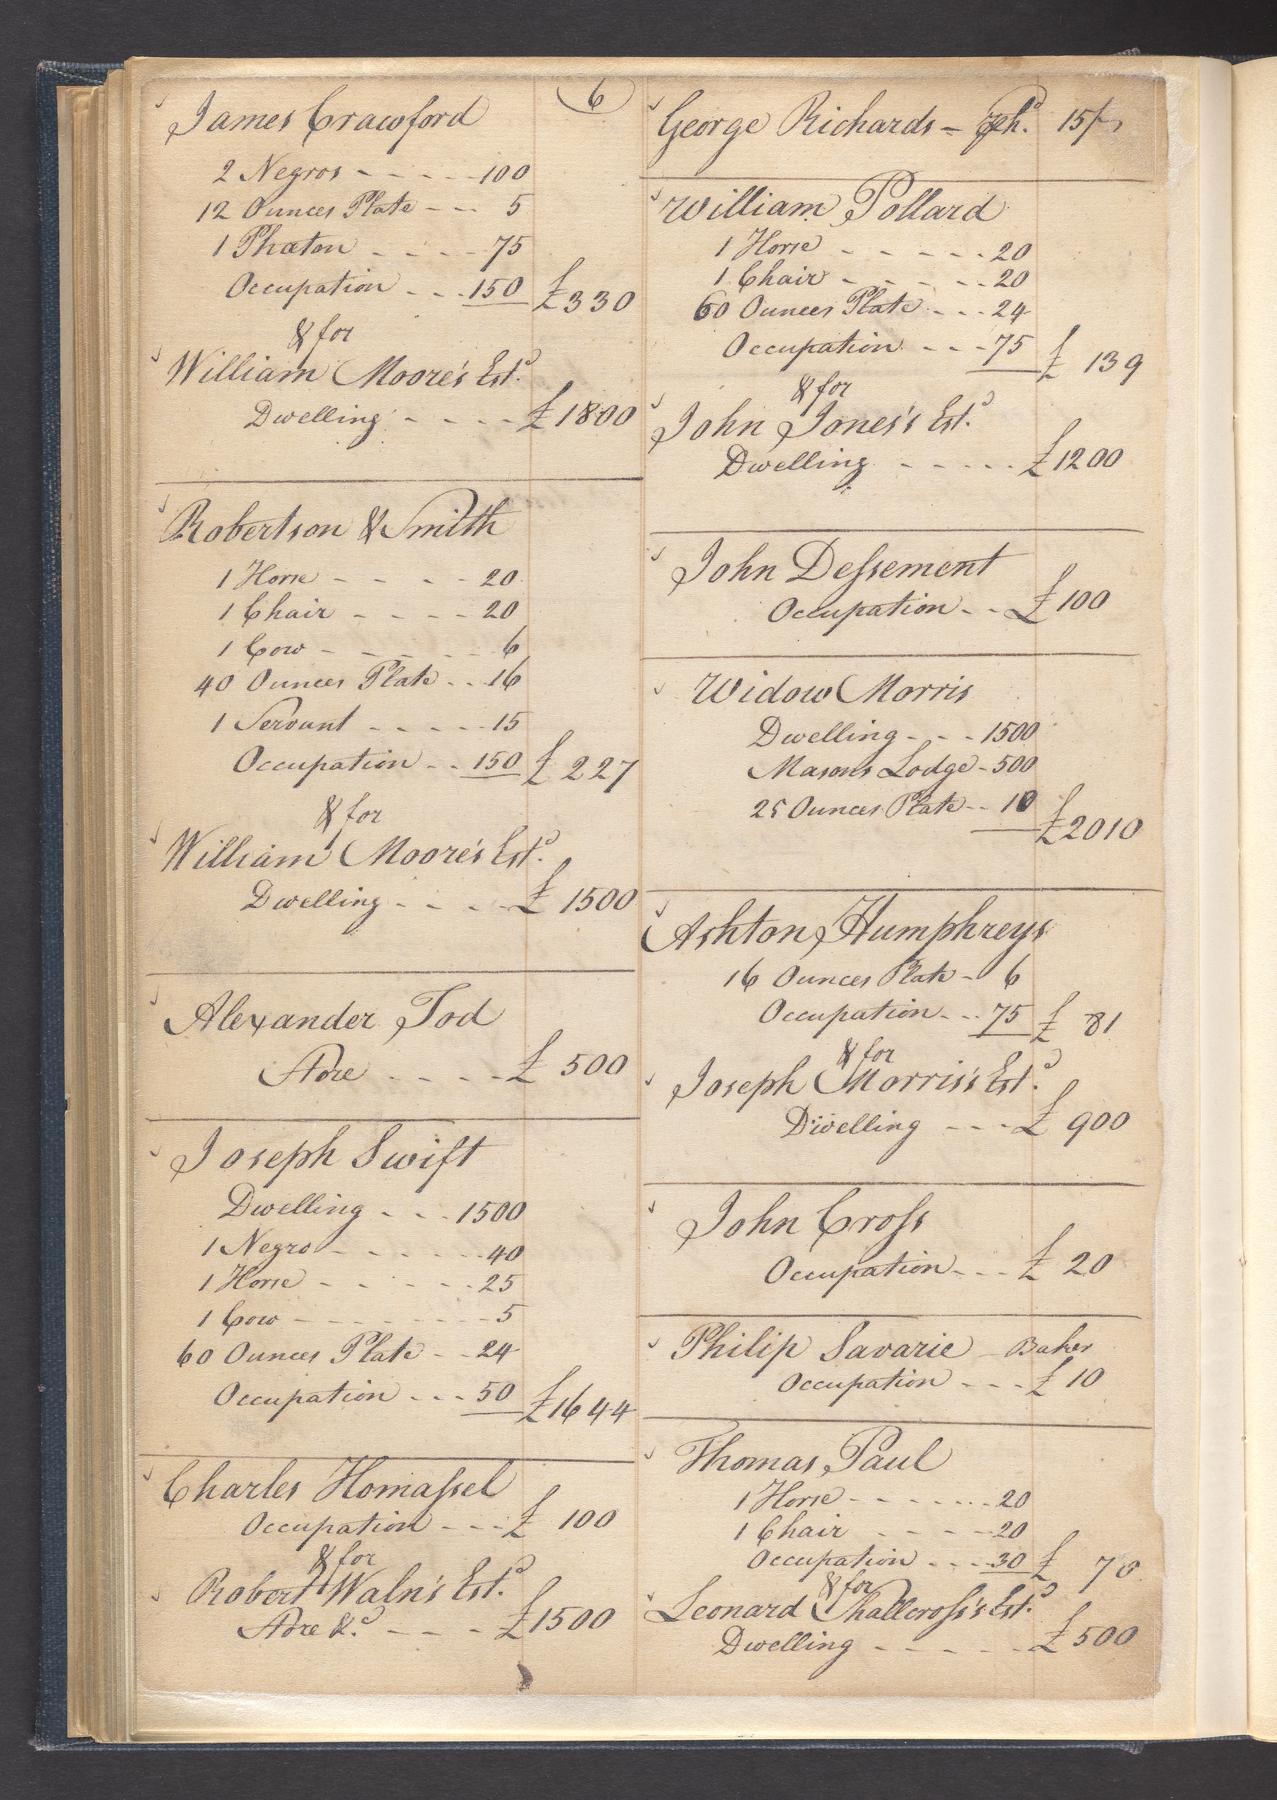 6
James Crawford
2 Negros - - - - - 100
12 Ounces Plate - - - 5
1 Phæton - - - - 75
Occupation - - - 150 £330
& for
William Moore's Estd
Dwelling - - - - £1800
Robertson & Smith
1 Horse - - - - 20
1 Chair - - - - 20
1 Cow - - - - - 6
40 Ounces Plate - - 16
1 Servant - - - - - 15
Occupation - - 150 £227
& for
William Moore's Estd
Dwelling - - - - £1500
Alexander Tod
Store - - - - £500
Joseph Swift
Dwelling - - - 1500
1 Negro - - - - - - 40
1 Horse - - - - - 25
1 Cow - - - - - - - 5
60 Ounces Plate - - 24
Occupation - - - 50 £1644
Charles Homassel
Occupation - - - £100
& for
Robert Waln's Estd
Store &c - - - - £1500
George Richards - 15/
William Pollard
1 Horse - - - - - - 20
1 Chair - - - - - - 20
60 Ounces Plate - - - 24
Occupation - - - 75 £139
& for
John Jones's Estd
Dwelling - - - - - £1200
John Dessement
Occupation - - £100
Widow Morris
Dwelling - - - 1500
Masons Lodge - 500
25 Ounces Plate - - 10
£2010
Ashton Humphreys
16 Ounces Plate - 6
Occupation - - - 75 £81
& for
Joseph Morris's Estd
Dwelling - - - £900
John Cross
Occupation - - - £20
Philip Savarie Baker
Occupation - - - £10
Thomas Paul
1 Horse - - - - - - - 20
1 Chair - - - - - 20
Occupation - - - 30 £70
& for
Leonard Shallcross's Estd
Dwelling - - - - - - £500